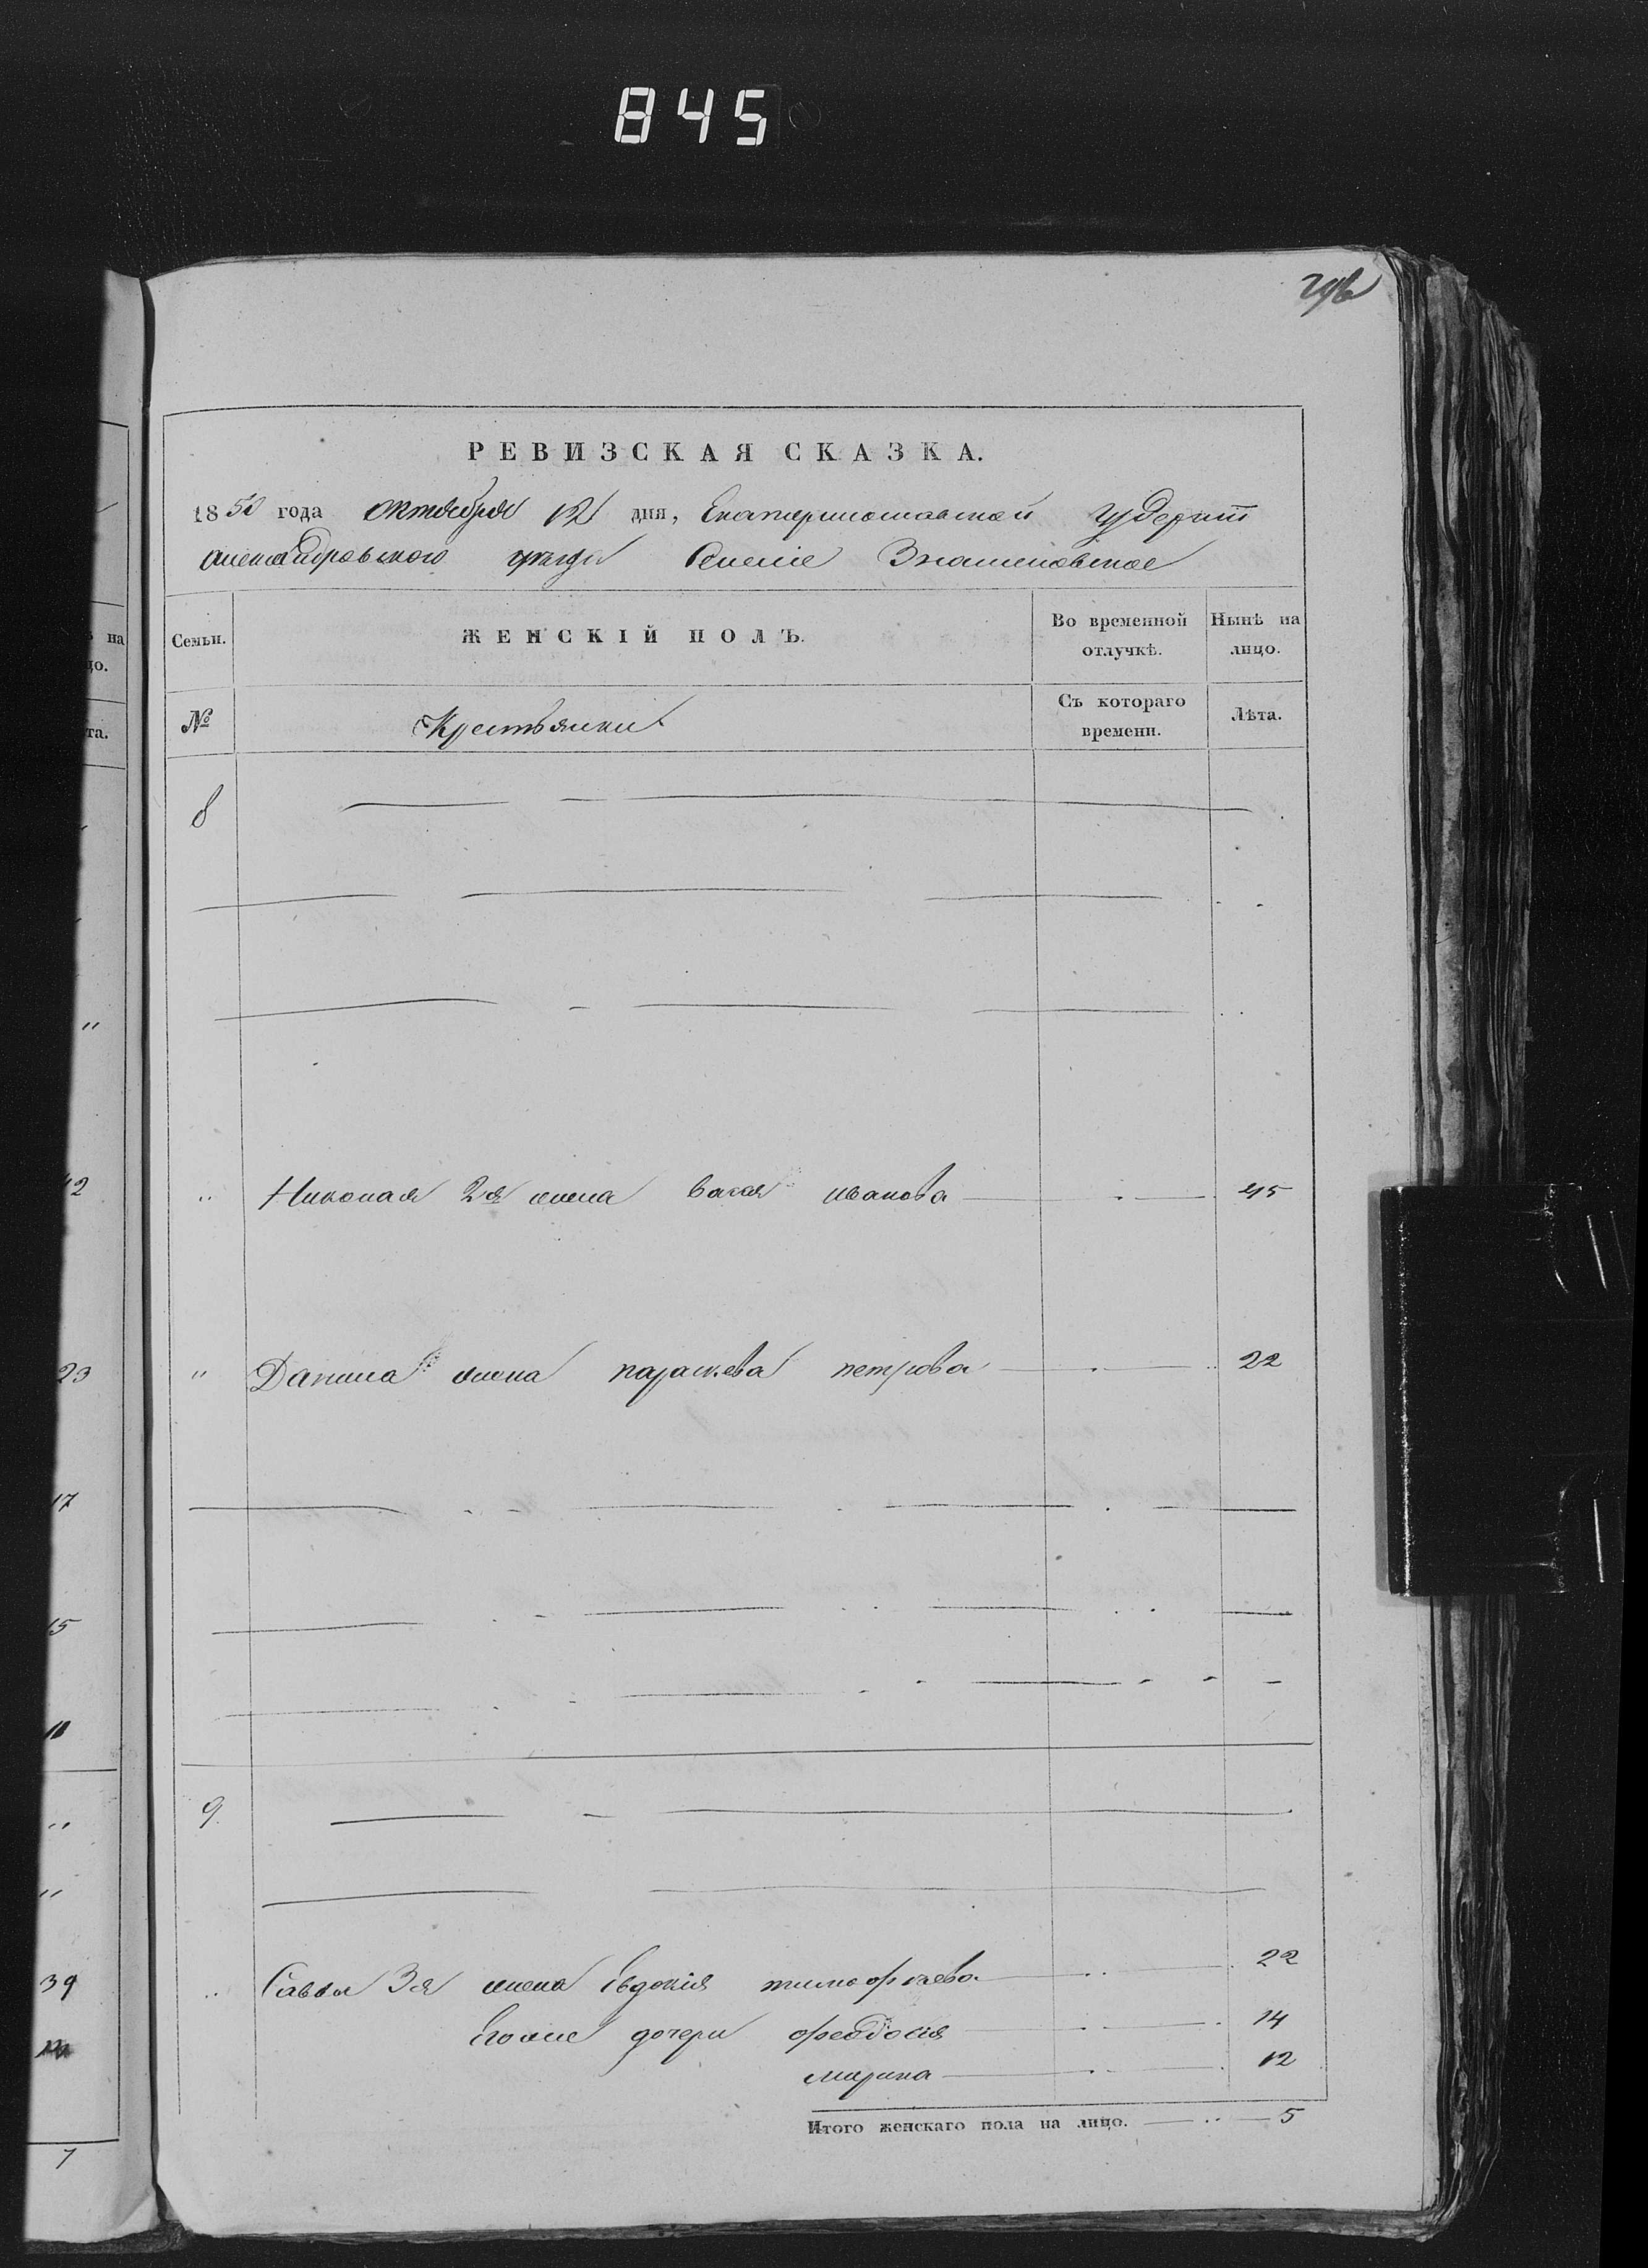 845
РЕВИЗСКАЯ СКАЗКА.
1850 года октября 12 дня, Екатеринославской губерніи
Александровского уезда Селеніе Знаменовское
на
цо.
та.
Семьи. ЖЕНСКІЙ ПОЛЪ. Во временной отлучкѣ. Нынѣ на лицо.
№ Крестьянки Съ котораго времени. Лѣта.
8
"
42 " Николая 2я жена Васса иванова 45
23 " Данила жена параскева петрова 22
17
15
11
" 9
"
39 " Саввы 3я жена Евдокія тимофеева 22
Егоже дочери феодосія 14
марина 12
7 Итого женскаго пола на лицо. 5